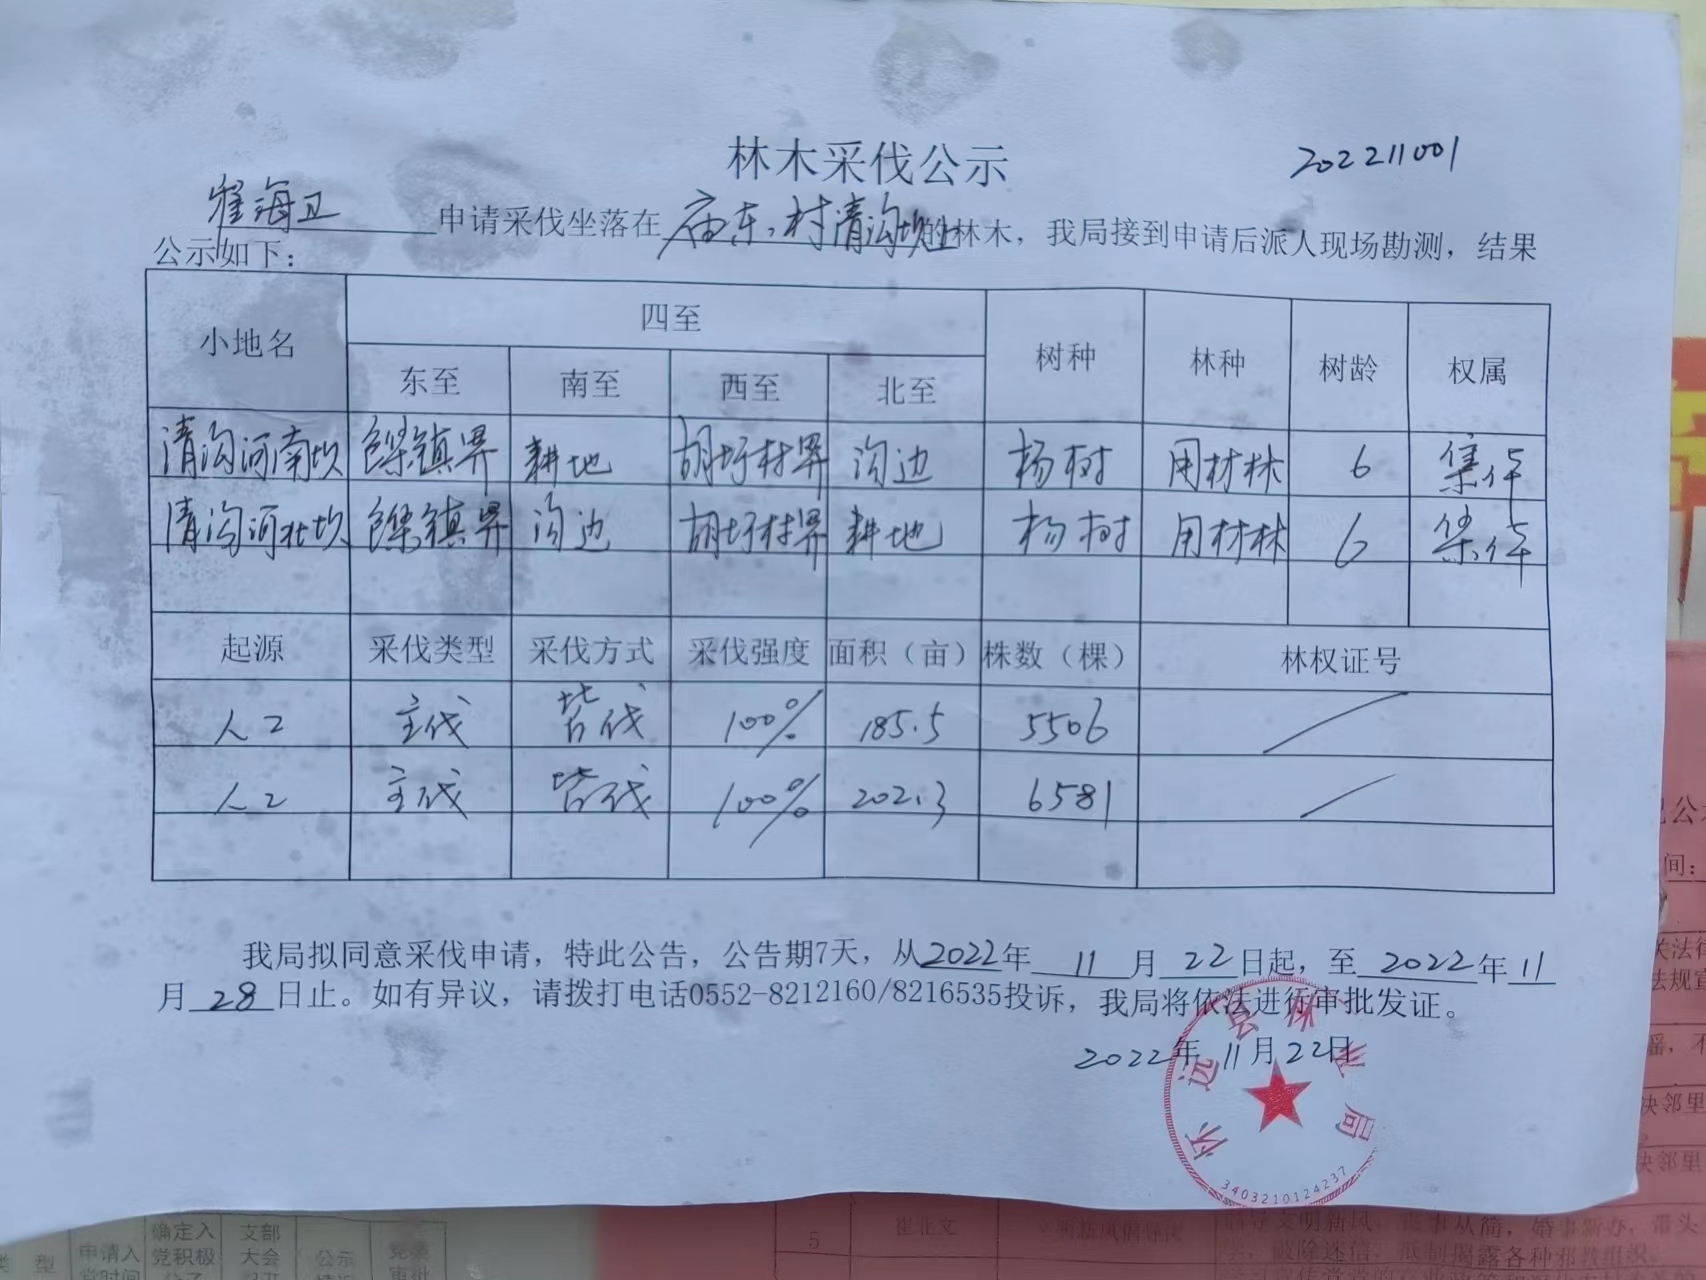 林木采伐公示
202211001
翟海卫 申请采伐坐落在 庙东村清沟坝上的林木，我局接到申请后派人现场勘测，结果
公示如下：
小地名 四至 树种 林种 树龄 权属
东至 南至 西至 北至
清沟河南坝 镇界 耕地 胡圩村界 沟边 杨树 用材林 6 集体
清沟河北坝 镇界 沟边 胡圩村界 耕地 杨树 用材林 6 集体
起源 采伐类型 采伐方式 采伐强度 面积（亩） 株数（棵） 林权证号
人工 主伐 皆伐 100% 185.5 5506
人工 主伐 皆伐 100% 202.3 6581
我局拟同意采伐申请，特此公告，公告期7天，从2022年 11 月 22日起，至 2022年11
月 28 日止。如有异议，请拨打电话0552-8212160/8216535投诉，我局将依法进行审批发证。
2022年 11月22日
怀远县林业局
3403210124237
己公
间：
关法律
法规宣
谣，不
决邻里
决邻里
类 型 申请入 确定入 支部 公示
党时间 党积极 大会
5 崔北文
倡导文明新风，丧事从简，婚事新办，带头
学，破除迷信，抵制揭露各种邪教组织。